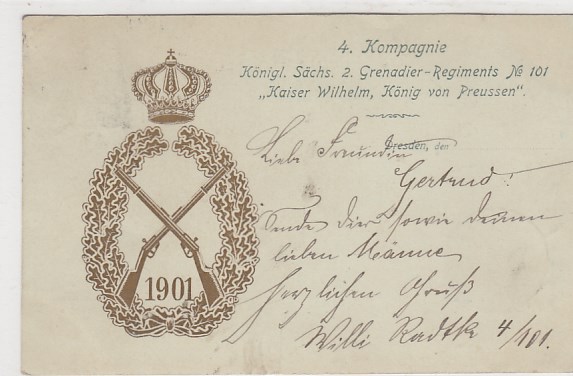 4. Kompagnie
Königl. Sächs. 2. Grenadier-Regiments № 101
„Kaiser Wilhelm, König von Preussen“.
Dresden, den
Liebe Freundin
Gertrud!
Sende dir sowie deinen
lieben Manne
herzlichen Gruß
Willi Radtk 4/101.
1901